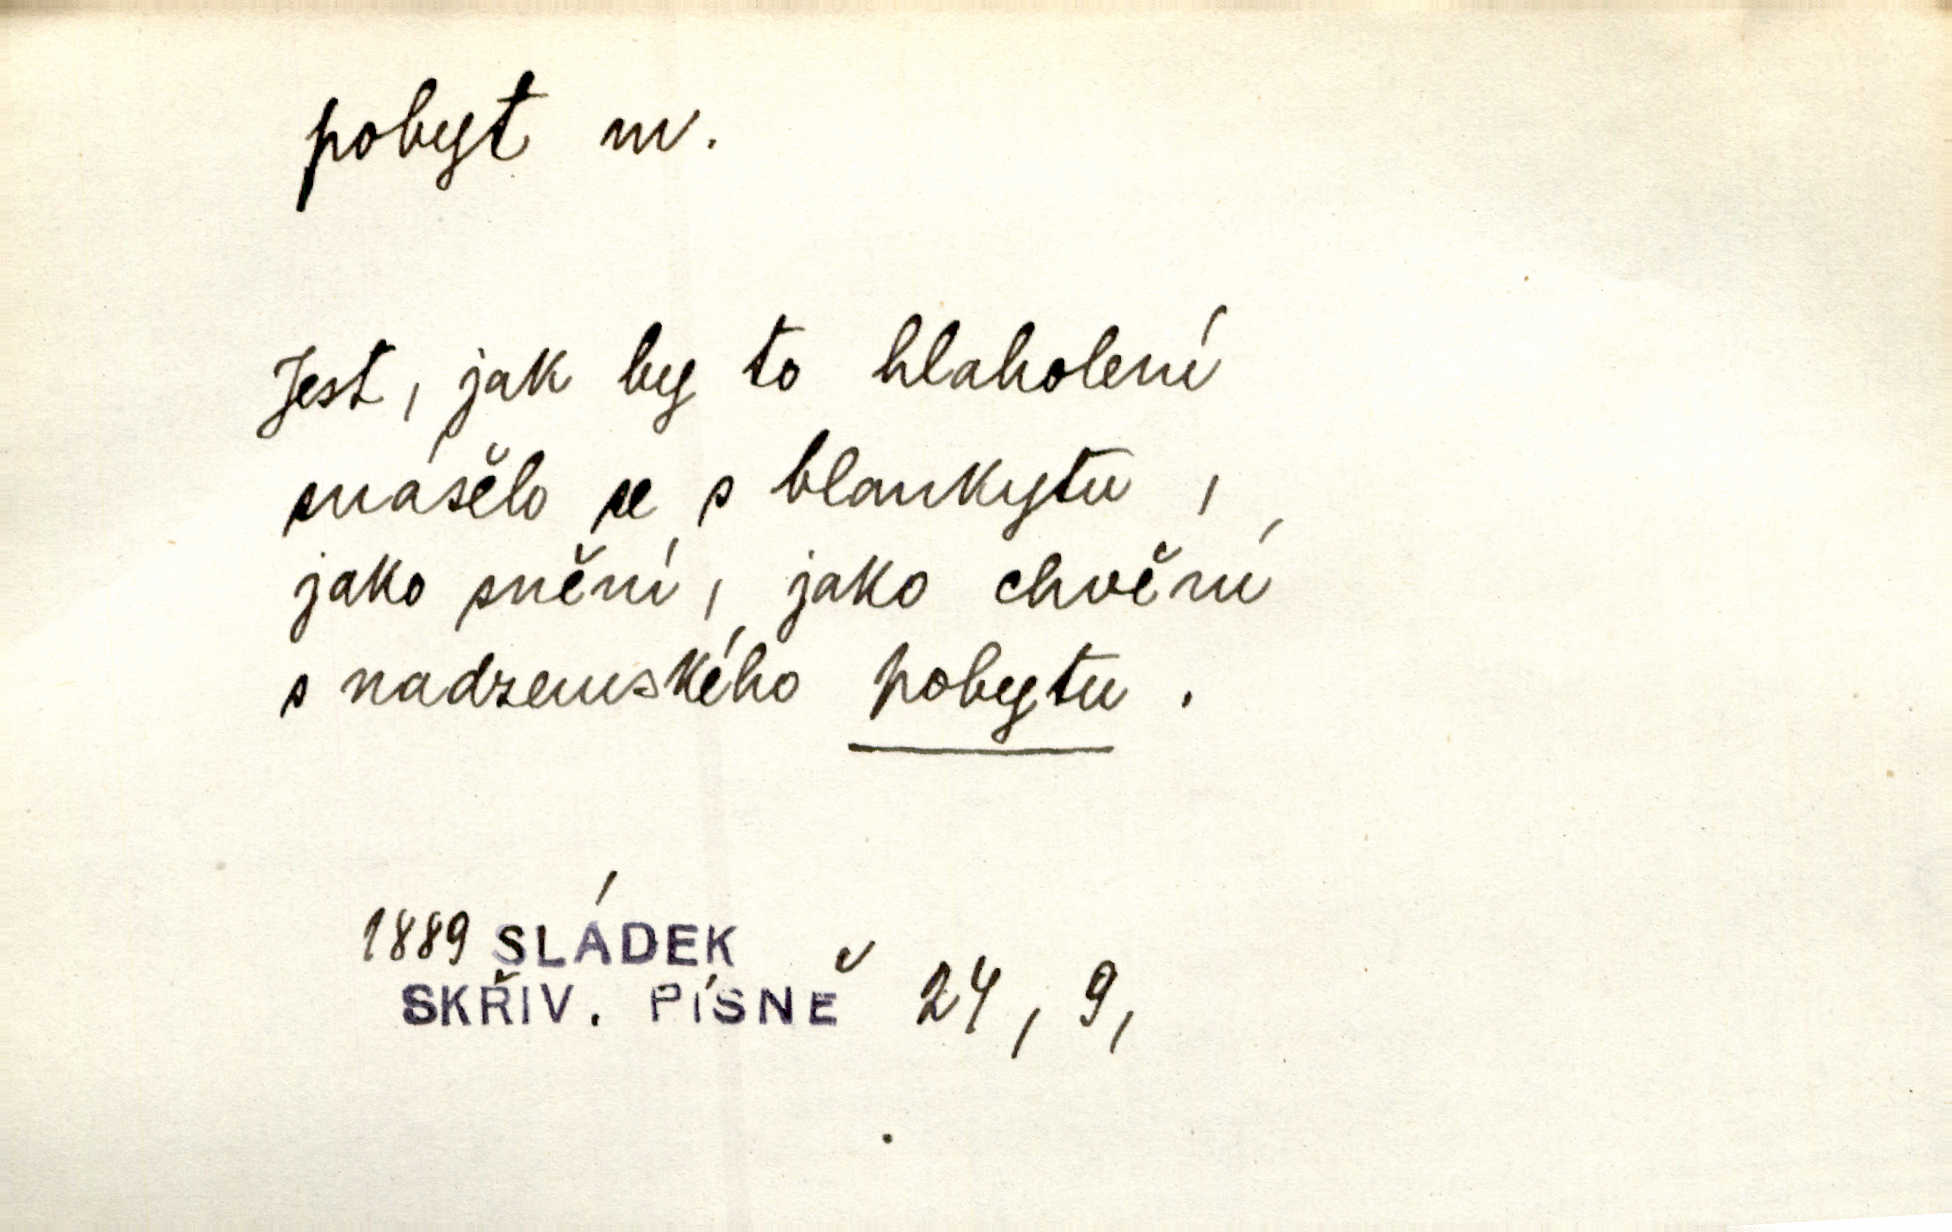 pobyt m.
Jest, jak by to hlaholení
snášelo se s blankytu,
jako snění, jako chvění
s nadzemského pobytu.
1889 SLÁDEK
SKŘIV. PÍSNĚ 24, 9,